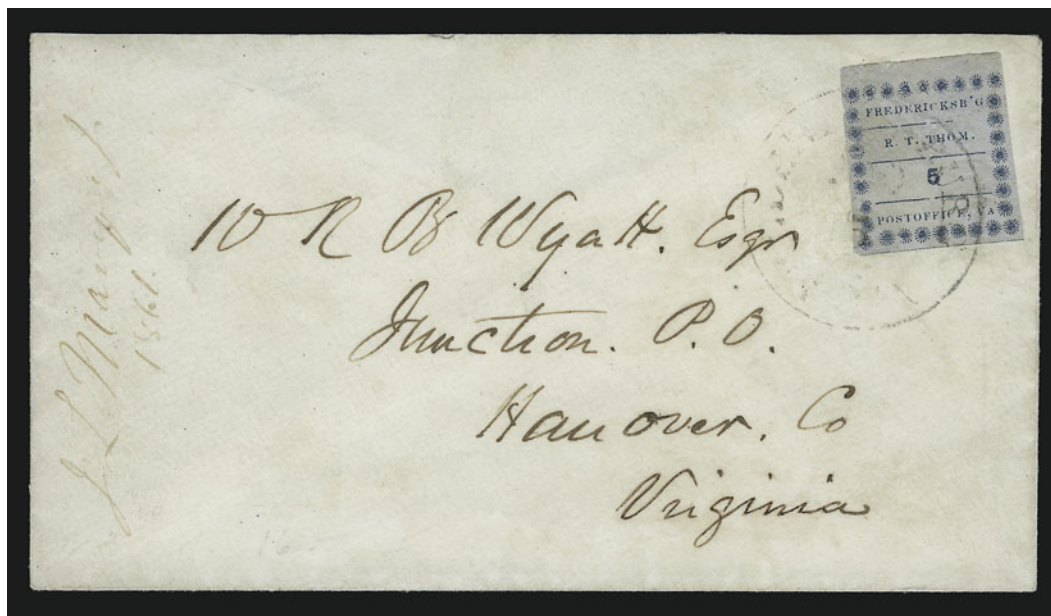 FREDERICKSB'G
R. T. THOM.
5
POSTOFFICE, VA
W R B Wyatt. Esqr
Junction. P. O.
Hanover. Co
Virginia
1861.